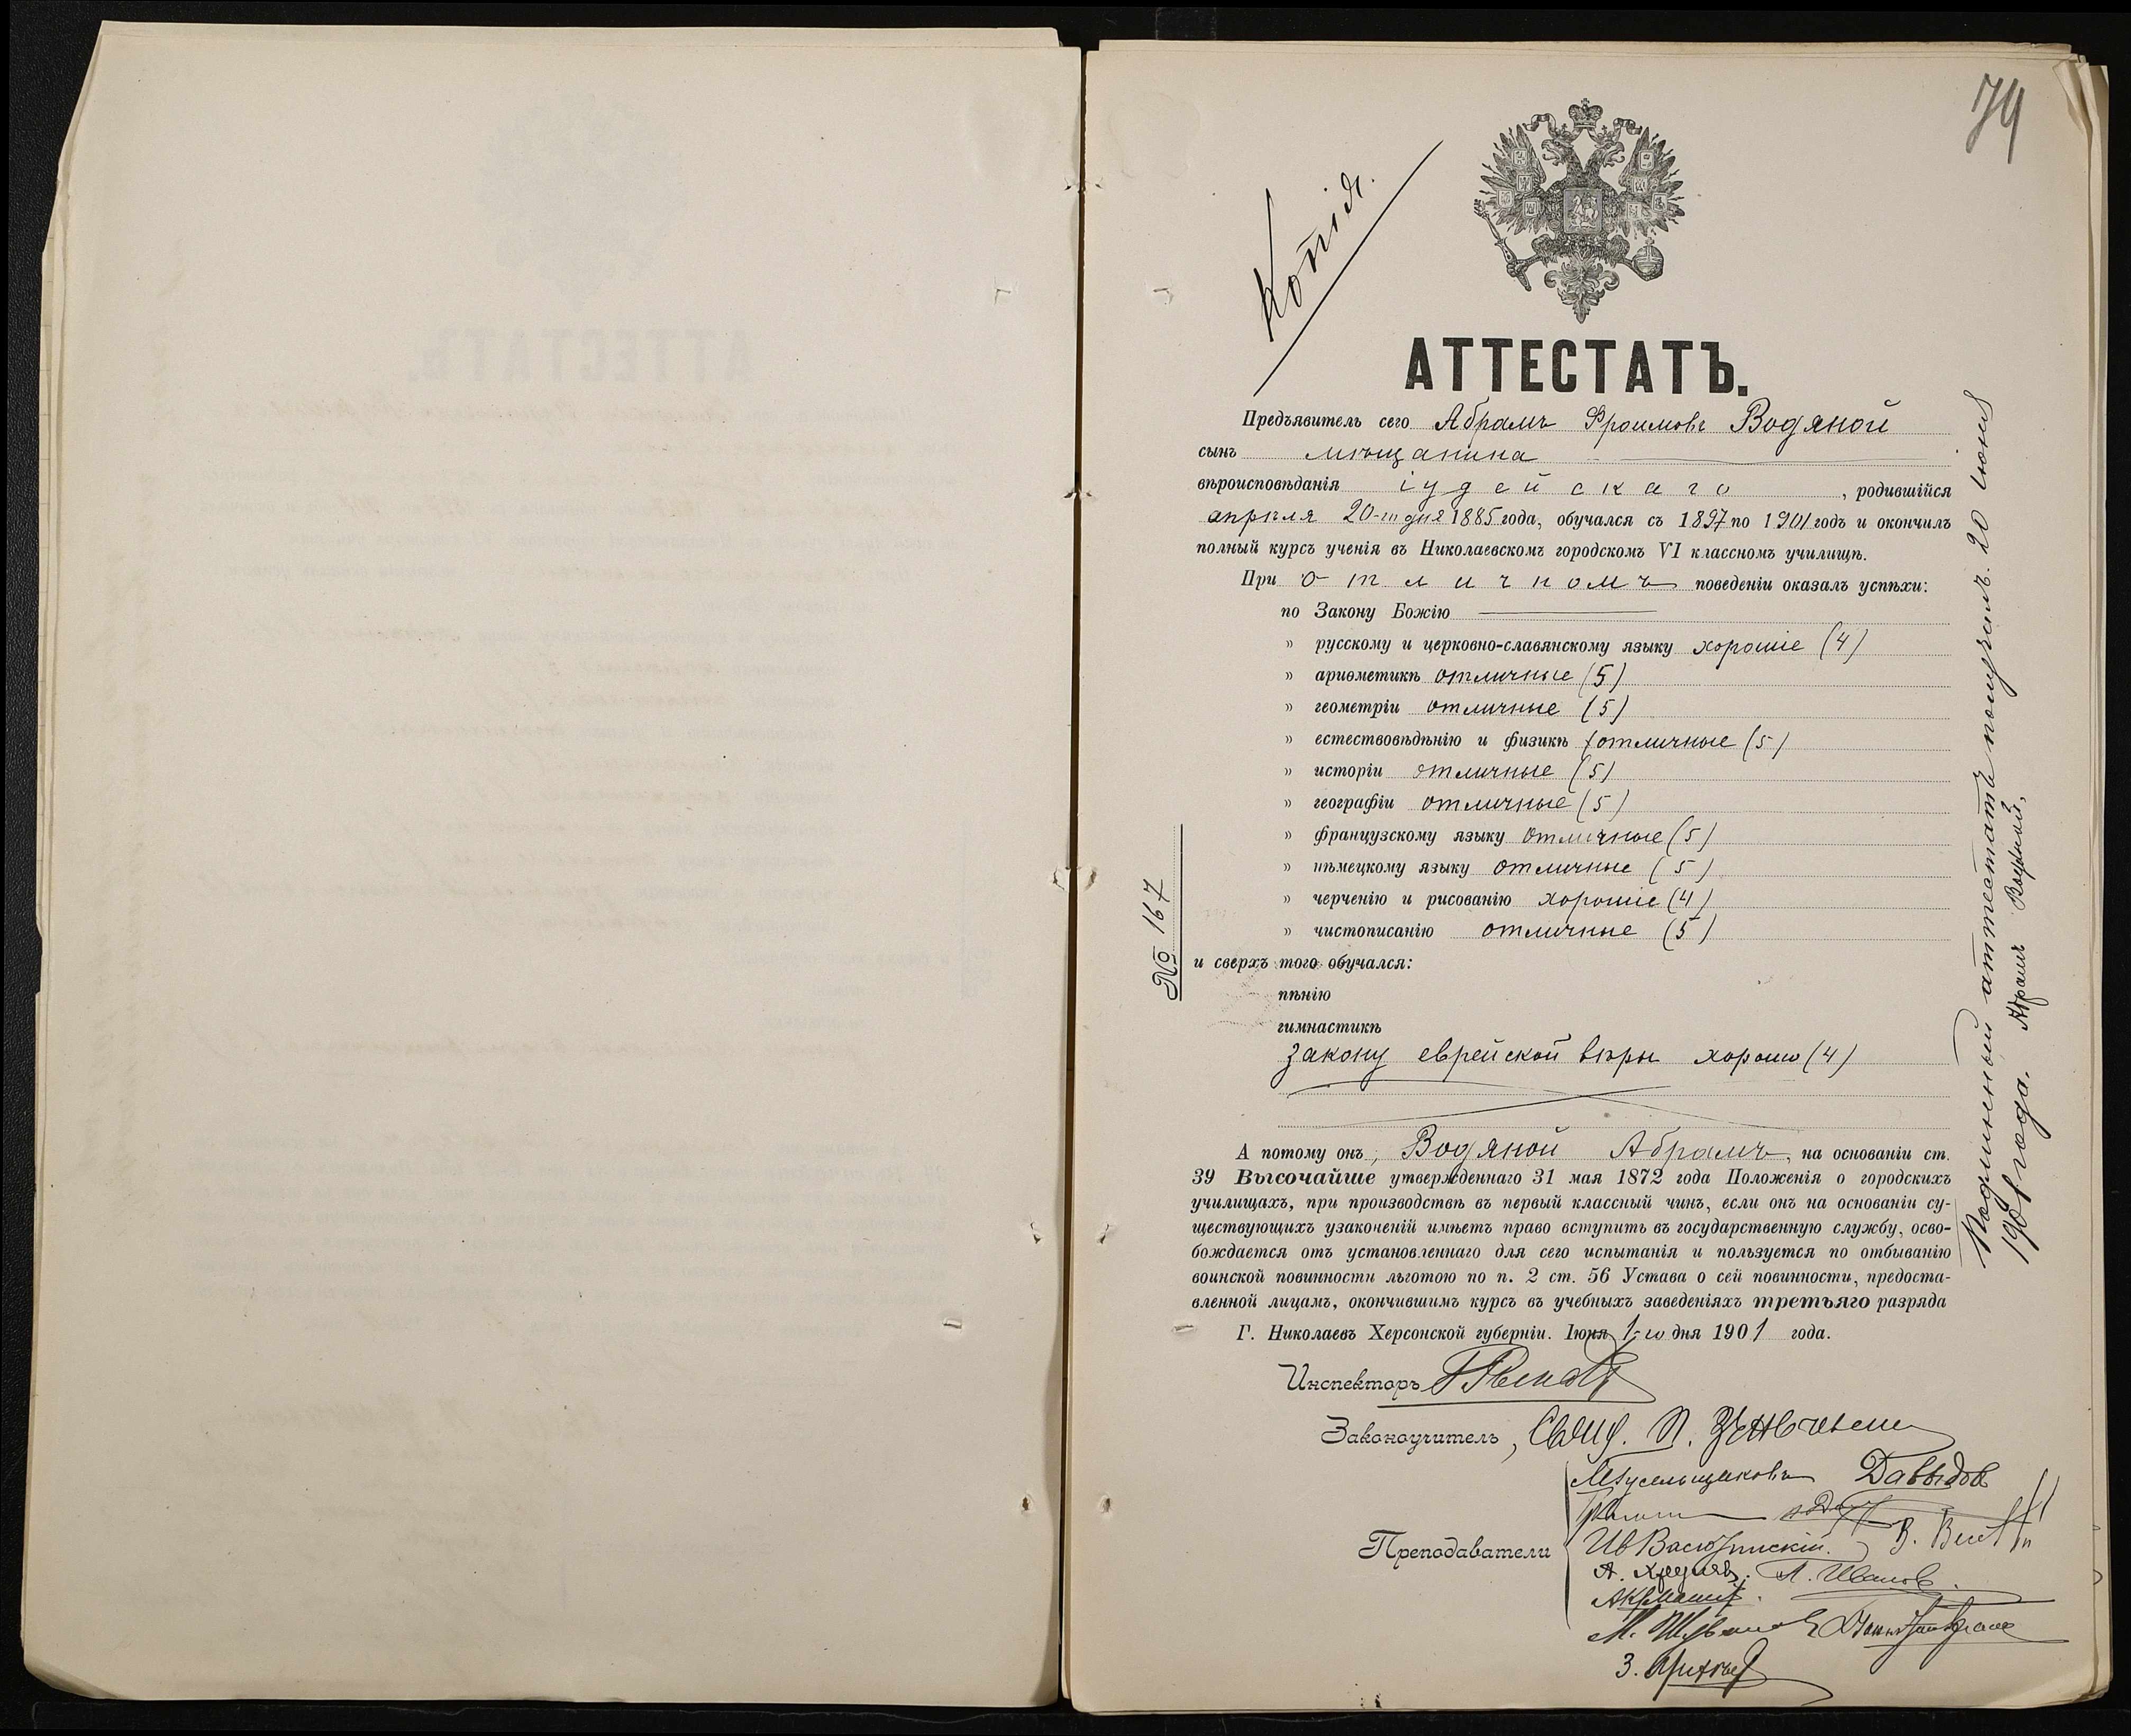 79
Копія.
АТТЕСТАТЪ.
Предъявитель сего Абрамъ Фроимовъ Водяной
сынъ мѣщанина
вѣроисповѣданія іудейскаго, родившійся
апрѣля 20-го дня 1885 года, обучался съ 1897 по 1901 годъ и окончилъ
полный курсъ ученія въ Николаевскомъ городскомъ VI классномъ училищѣ.
При отличномъ поведеніи оказалъ успѣхи:
по Закону Божію
» русскому и церковно-славянскому языку хорошіе (4)
» ариѳметикѣ отличные (5)
» геометріи отличные (5)
» естествовѣдѣнію и физикѣ отличные (5)
» исторіи отличные (5)
» географіи отличные (5)
» французскому языку отличные (5)
» нѣмецкому языку отличные (5)
» черченію и рисованію хорошіе (4)
» чистописанію отличные (5)
и сверхъ того обучался:
пѣнію
гимнастикѣ
закону еврейской вѣры хорошо (4)
А потому онъ, Водяной Абрамъ, на основаніи ст.
39 Высочайше утвержденнаго 31 мая 1872 года Положенія о городскихъ
училищахъ, при производствѣ въ первый классный чинъ, если онъ на основаніи су-
ществующихъ узаконеній имѣетъ право вступить въ государственную службу, осво-
бождается отъ установленнаго для сего испытанія и пользуется по отбыванію
воинской повинности льготою по п. 2 ст. 56 Устава о сей повинности, предоста-
вленной лицамъ, окончившимъ курсъ въ учебныхъ заведеніяхъ третьяго разряда
Г. Николаевъ Херсонской губерніи. Іюня 1-го дня 1901 года.
Инспекторъ
Законоучитель, Свящ. П.
Давыдов
Преподаватели
А. Иванов
№ 167
Подлинный аттестатъ получилъ. 20 іюня
1901 года. Абрамъ Водяной.
АТТЕСТАТЪ.